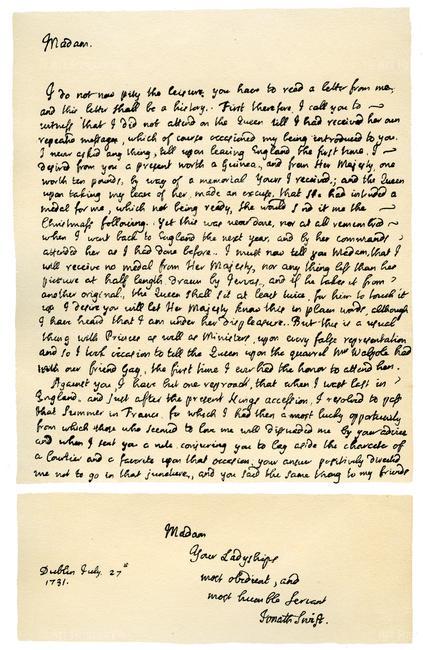 Madam.
I do not now pity the leisure you have to read a letter from me,
and this letter shall be a history. First therefore, I call you to
witness that I did not attend on the Queen till I had received her own
repeated messages, which of course occasioned my being introduced to you.
I never asked any thing, till upon leaving England the first time, I
desired from you a present worth a Guinea, and from Her Majesty, one
worth ten pounds, by way of a memorial. Yours I received; and the Queen
upon taking my leave of her, made an excuse, that she had intended a
medal for me, which not being ready, she would send it me the
Christmass following. Yet this was never done, nor at all remembred
when I went back to England the next year, and by her commands
attended her as I had done before. I must now tell you Madam, that I
will receive no medal from Her Majesty, nor any thing less than her
picture at half length, drawn by Jervas, and if he takes it from
another original, the Queen shall sit at least twice, for him to touch it
up. I desire you will let Her Majesty know this in plain words, although
I have heard that I am under her displeasure. But this is a usual
thing with Princes as well as Ministers, upon every false representation
and so I took occasion to tell the Queen upon the quarrel Mr Walpole had
with our friend Gay, the first time I ever had the honor to attend her.
Against you I have but one reproach, that when I was last in
England, and just after the present Kings accession, I resolved to pass
that Summer in France, for which I had then a most lucky opportunity
from which those who seemed to love me well disswaded me by your advice
and when I sent you a note, conjuring you to lay aside the character of
a Courtier and a favorite upon that occasion, your answer positively directed
me not to go in that juncture, and you said the same thing to my friends
Madam
Your Ladyships
most obedient, and
most humble Servant
Jonath Swift.
Dublin July. 27th
1731.